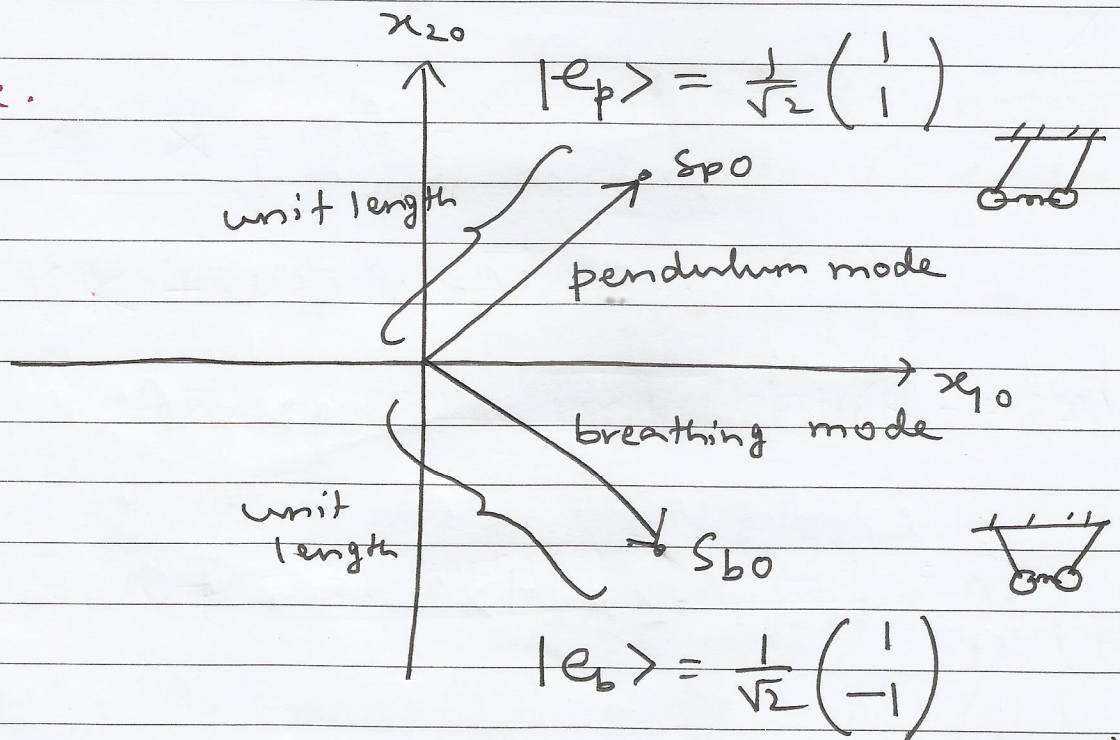 x₂₀
|e_p> = 1/√2 (1 1)
s_p0
unit length
pendulum mode
x₁₀
breathing mode
unit
length
s_b0
|e_b> = 1/√2 (1 -1)